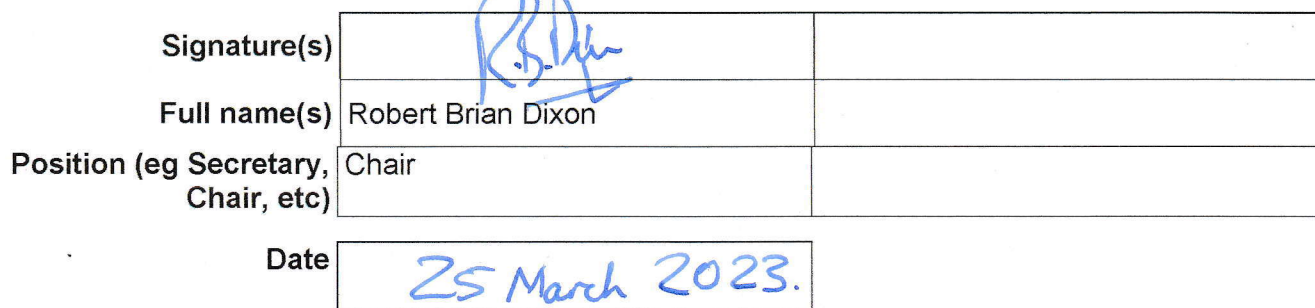 Signature(s) R.B.Dixon
Full name(s) Robert Brian Dixon
Position (eg Secretary, Chair
Chair, etc)
Date 25 March 2023.